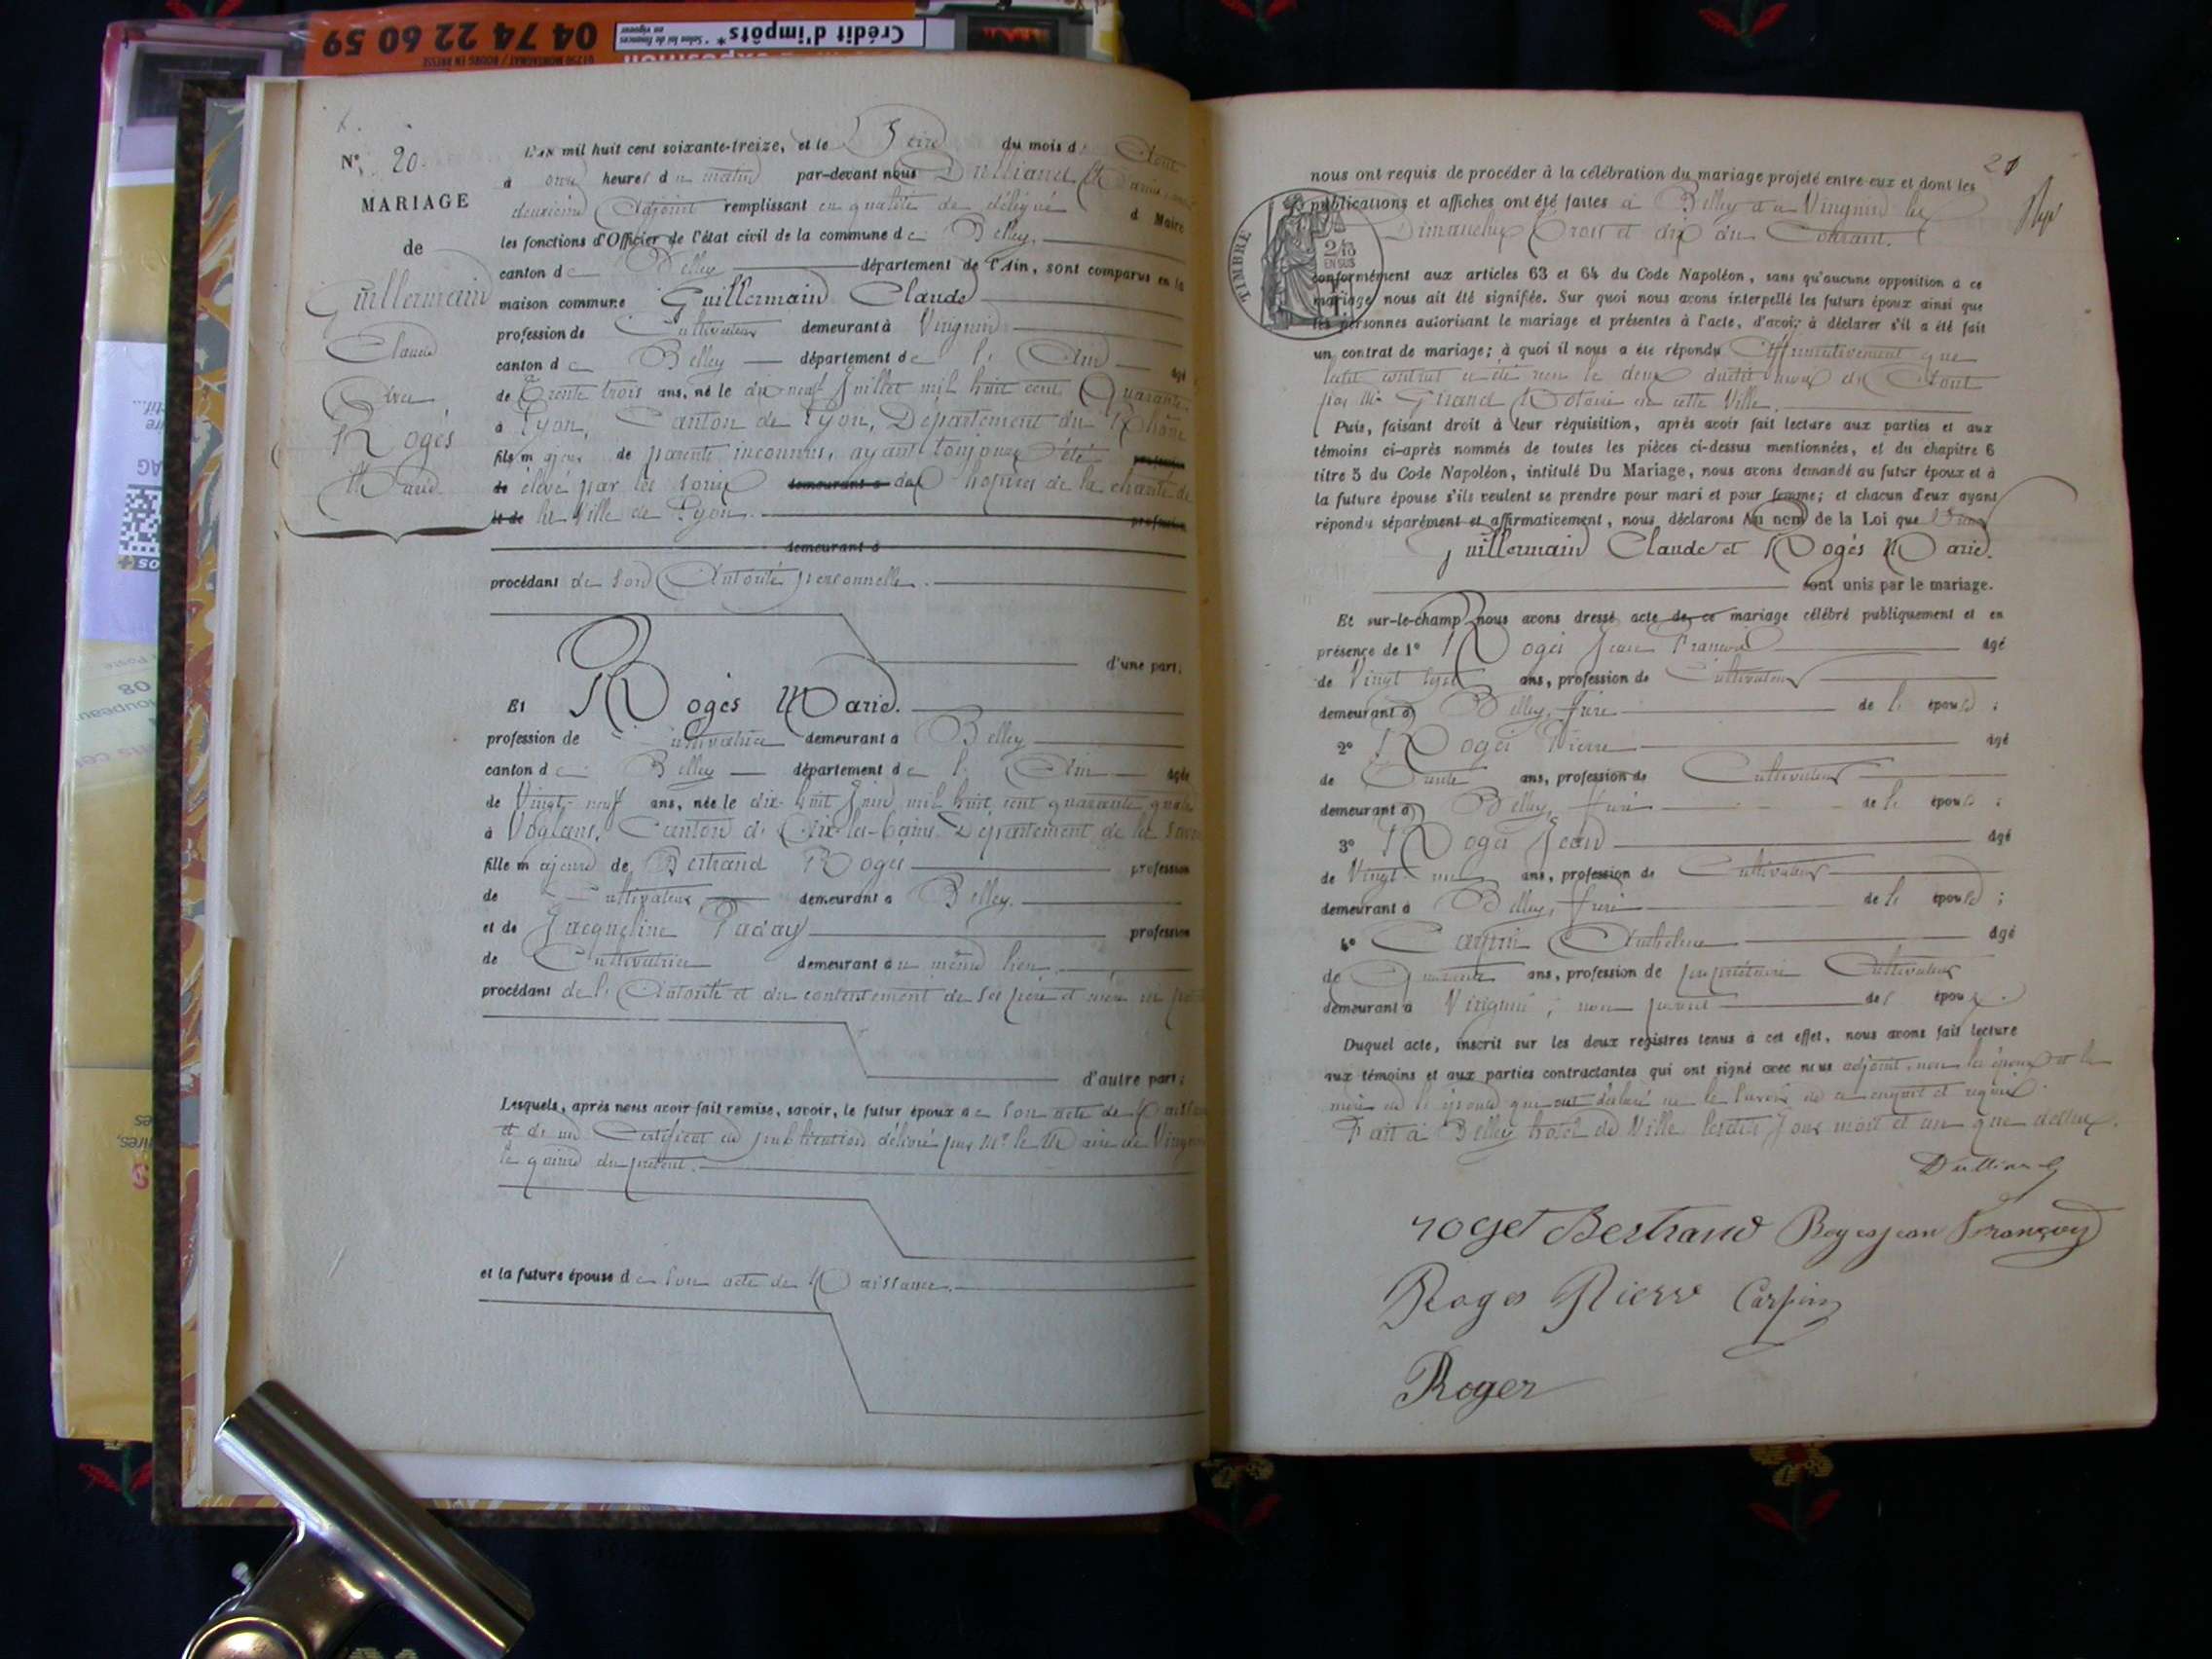 04 74 22 60 59
Crédit d'impôts* * Selon loi de finances en vigueur
01250 MONTAGNAT / BOURG EN BRESSE
N° 20.
MARIAGE
de
Guillermain
Claude
Avec
Rogès
Marie
L'AN mil huit cent soixante-treize, et le Seize du mois d' Aout
à onze heures du matin par-devant nous Dulliand
deuxième Adjoint remplissant en qualité de délégué d Maire
les fonctions d'Officier de l'état civil de la commune de Belley.
canton de Belley département de l'Ain, sont comparus en la
maison commune Guillermain Claude
profession de Cultivateur demeurant à Virignin
canton de Belley département de l' Ain âgé
de Trente trois ans, né le dix neuf Juillet mil huit cent Quarante
à Lyon, Canton de Lyon, Département du Rhône
fils majeur de parents inconnus, ayant toujours été profession
de élevé par les soins demeurant à des hospices de la charité de
et de la Ville de Lyon. profession
demeurant à
procédant de son Autorité personnelle.
d'une part;
Et Rogès Marie.
profession de Cultivatrice demeurant à Belley
canton de Belley département de l' Ain âgée
de Vingt-neuf ans, née le dix-huit Juin mil huit cent quarante quatre
à Voglans, Canton d'Aix-les-bains Département de la Savoie
fille majeure de Bertrand Rogès profession
de Cultivateur demeurant à Belley.
et de Jacqueline Paday profession
de Cultivatrice demeurant au même lieu.
procédant de l' Autorité et du consentement de ses père et mère
d'autre part;
Lesquels, après nous avoir fait remise, savoir, le futur époux de son acte de Naissance
et de un Certificat de publication délivré par Mr le Maire de Virignin
le quinze du présent.
et la future épouse de son acte de Naissance.
21
TIMBRE
2/10
EN SUS
nous ont requis de procéder à la célébration du mariage projeté entre eux et dont les
publications et affiches ont été faites à Belley et à Virignin les
Dimanches Trois et dix du Courant.
conformément aux articles 63 et 64 du Code Napoléon, sans qu'aucune opposition à ce
mariage nous ait été signifiée. Sur quoi nous avons interpellé les futurs époux ainsi que
les personnes autorisant le mariage et présentes à l'acte, d'avoir à déclarer s'il a été fait
un contrat de mariage; à quoi il nous a été répondu Affirmativement que
ledit contrat a été reçu le deux dudit mois de Aout
par Me Girand Notaire en cette Ville.
Puis, faisant droit à leur réquisition, après avoir fait lecture aux parties et aux
témoins ci-après nommés de toutes les pièces ci-dessus mentionnées, et du chapitre 6
titre 5 du Code Napoléon, intitulé Du Mariage, nous avons demandé au futur époux et à
la future épouse s'ils veulent se prendre pour mari et pour femme; et chacun d'eux ayant
répondu séparément et affirmativement, nous déclarons Au nom de la Loi que
Guillermain Claude et Rogès Marie.
sont unis par le mariage.
Et sur-le-champ nous avons dressé acte de ce mariage célébré publiquement et en
présence de 1° Rogès Jean François âgé
de Vingt sept ans, profession de Cultivateur
demeurant à Belley, frère de l' épouse;
2° Rogès Pierre âgé
de Trente ans, profession de Cultivateur
demeurant à Belley, frère de l' épouse;
3° Rogès Jean âgé
de Vingt un ans, profession de Cultivateur
demeurant à Belley, frère de l' épouse;
4° Carpin Anthelme âgé
de Quarante ans, profession de propriétaire Cultivateur
demeurant à Virignin; non parent des époux.
Duquel acte, inscrit sur les deux registres tenus à cet effet, nous avons fait lecture
aux témoins et aux parties contractantes qui ont signé avec nous adjoint, non les époux et la
mère de l'épouse qui ont déclaré ne le savoir de ce enquis et requis
Fait à Belley hôtel de Ville lesdits Jour mois et an que dessus.
Dulliand
roget Bertrand Roges jean François
Roges Pierre Carpin
Roger